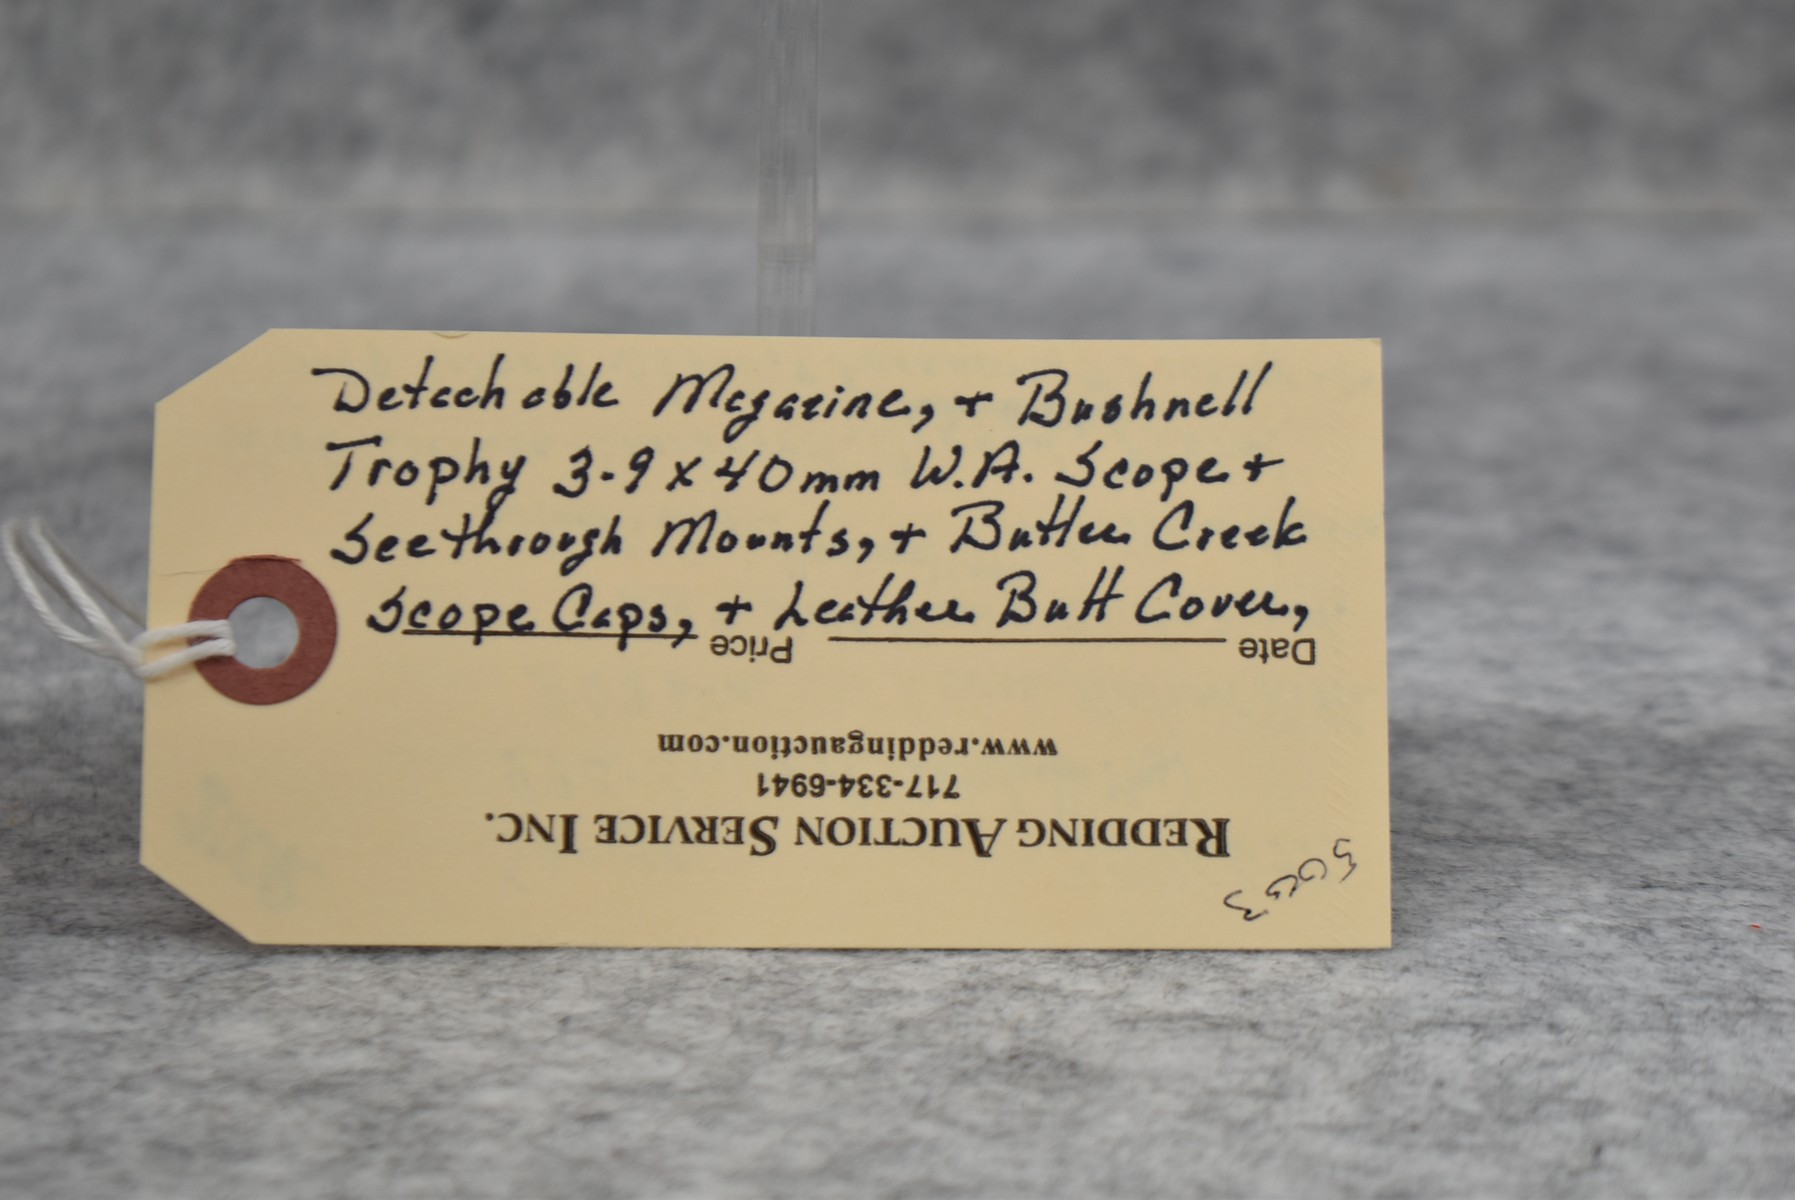 Detachable Magazine, + Bushnell
Trophy 3-9x40mm W.A. Scope +
Seethrough Mounts, + Butler Creek
Scope Caps, + Leather Butt Cover,
Date Price
www.reddingauction.com
717-334-6941
REDDING AUCTION SERVICE INC.